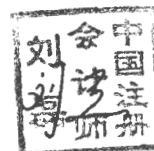 中国注册
会计师
刘